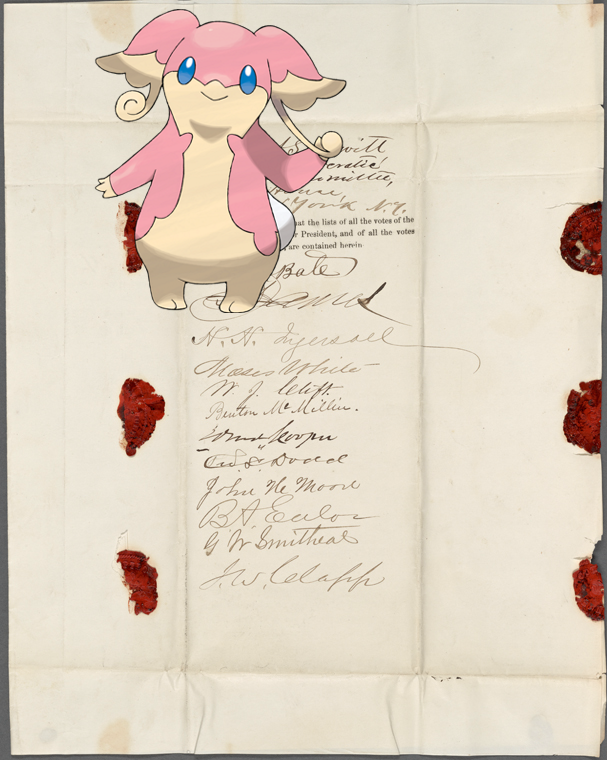 witt
cratic
mmittee,
York N.Y.
at the lists of all the votes of the
r President, and of all the votes
are contained herein
Bate
H. H. Ingersoll
Moses White
W. J. Clift.
Benton Mc Millin.
Cooper
Dodd
John
B. A. Enloe
G. W. Smitheal
J. W. Clapp